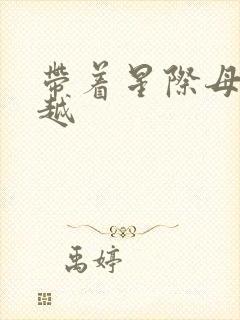 帶着星際母
越
禹婷